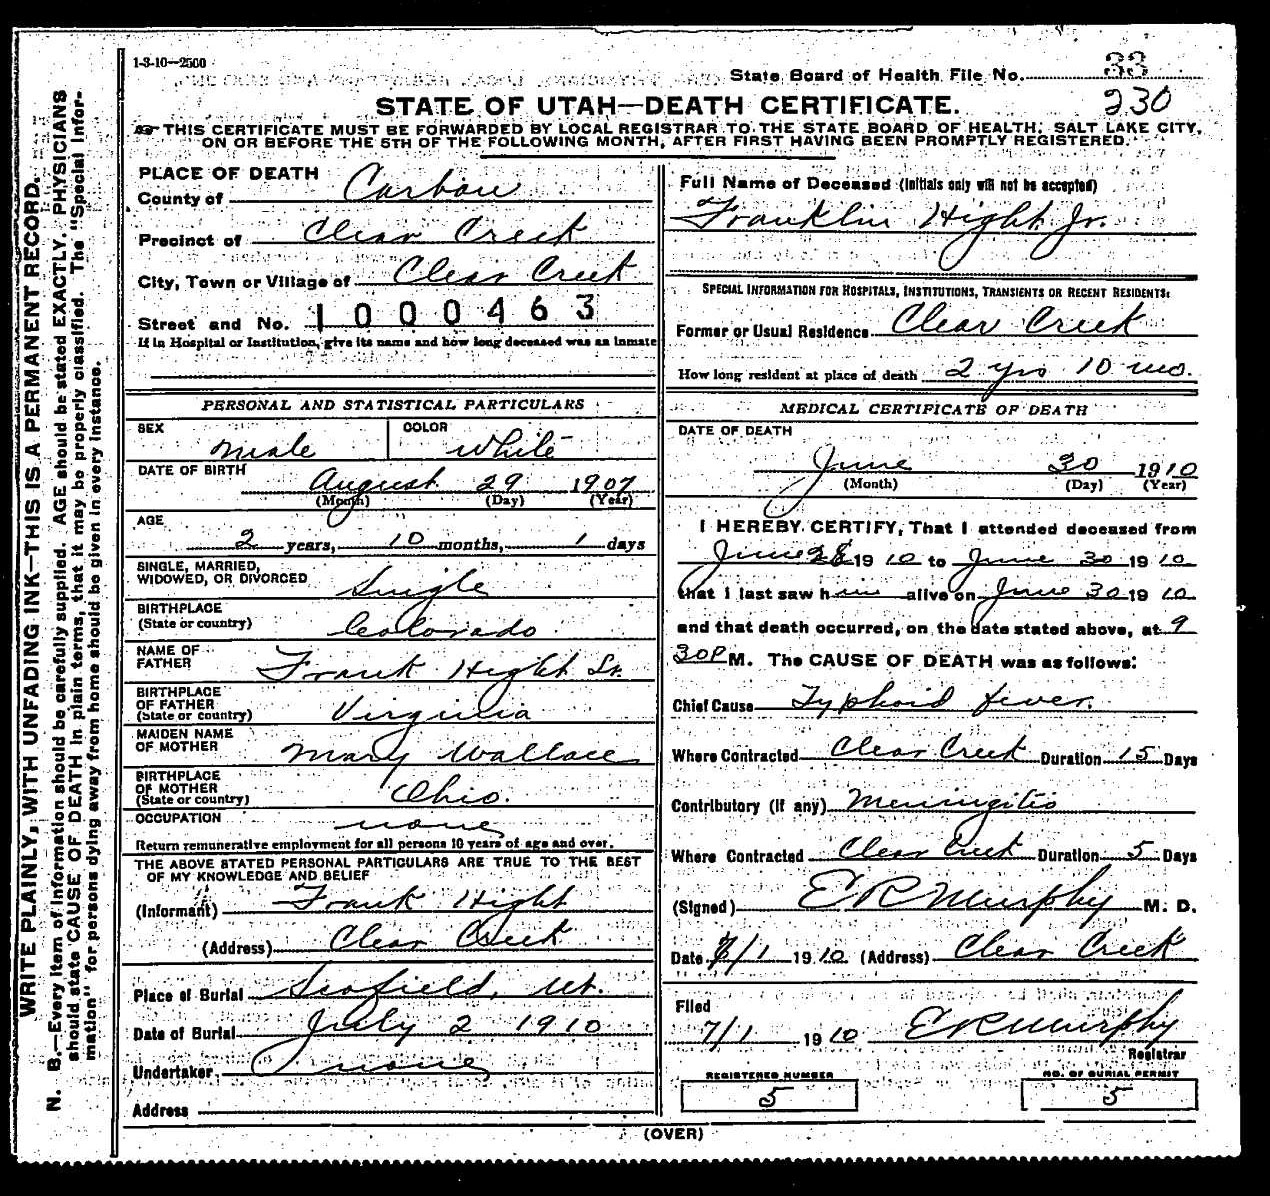 1-3-10—2500
State Board of Health File No. 33
230
STATE OF UTAH—DEATH CERTIFICATE.
THIS CERTIFICATE MUST BE FORWARDED BY LOCAL REGISTRAR TO THE STATE BOARD OF HEALTH, SALT LAKE CITY,
ON OR BEFORE THE 5TH OF THE FOLLOWING MONTH, AFTER FIRST HAVING BEEN PROMPTLY REGISTERED.
WRITE PLAINLY, WITH UNFADING INK—THIS IS A PERMANENT RECORD.
N. B.—Every item of information should be carefully supplied. AGE should be stated EXACTLY. PHYSICIANS
should state CAUSE OF DEATH in plain terms, that it may be properly classified. The "Special Infor-
mation" for persons dying away from home should be given in every instance.
PLACE OF DEATH
County of Carbon
Precinct of Clear Creek
City, Town or Village of Clear Creek
Street and No. 1000463
If in Hospital or Institution, give its name and how long deceased was an inmate
PERSONAL AND STATISTICAL PARTICULARS
SEX male COLOR white
DATE OF BIRTH August 29 1907
(Month) (Day) (Year)
AGE
2 years, 10 months, 1 days
SINGLE, MARRIED,
WIDOWED, OR DIVORCED Single
BIRTHPLACE
(State or country) Colorado
NAME OF
FATHER Frank Hight Sr.
BIRTHPLACE
OF FATHER
(State or country) Virginia
MAIDEN NAME
OF MOTHER Mary Wallace
BIRTHPLACE
OF MOTHER
(State or country) Ohio.
OCCUPATION none
Return remunerative employment for all persons 10 years of age and over.
THE ABOVE STATED PERSONAL PARTICULARS ARE TRUE TO THE BEST
OF MY KNOWLEDGE AND BELIEF
(Informant) Frank Hight
(Address) Clear Creek
Place of Burial Scofield, Ut.
Date of Burial July 2 1910
Undertaker none
Address
Full Name of Deceased (Initials only will not be accepted)
Franklin Hight Jr.
SPECIAL INFORMATION FOR HOSPITALS, INSTITUTIONS, TRANSIENTS OR RECENT RESIDENTS:
Former or Usual Residence Clear Creek
How long resident at place of death 2 yrs 10 mo.
MEDICAL CERTIFICATE OF DEATH
DATE OF DEATH
June 30 1910
(Month) (Day) (Year)
I HEREBY CERTIFY, That I attended deceased from
June 28 1910 to June 30 1910
that I last saw him alive on June 30 1910
and that death occurred, on the date stated above, at 9
30P M. The CAUSE OF DEATH was as follows:
Chief Cause Typhoid fever.
Where Contracted Clear Creek Duration 15 Days
Contributory (if any) Meningitis
Where Contracted Clear Creek Duration 5 Days
(Signed) E R Murphy M. D.
Date 7/1 1910 (Address) Clear Creek
Filed
7/1 1910 E R Murphy
Registrar
REGISTERED NUMBER NO. OF BURIAL PERMIT
5 5
(OVER)